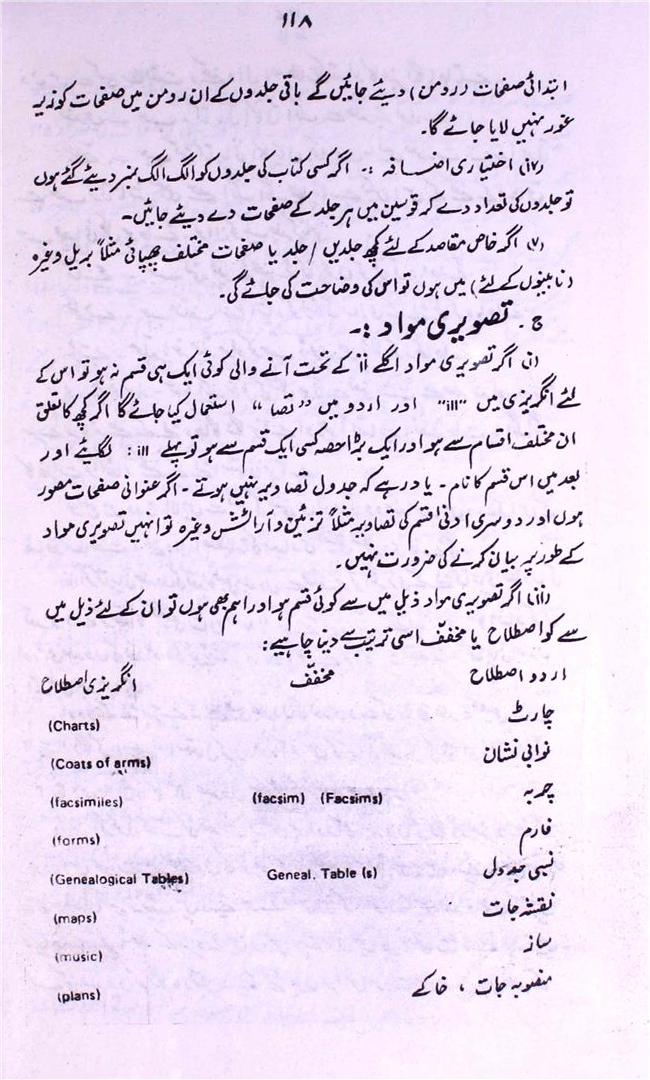 ۱۱۸
ابتدائی صفحات (رومن) دیئے جائیں گے باقی جلدوں کے ان رومن میں صفحات کو زیر
غور نہیں لایا جائے گا۔
(iv) اختیاری اضافہ :۔ اگر کسی کتاب کی جلدوں کو الگ الگ نمبر دیئے گئے ہوں
تو جلدوں کی تعداد دے کر قوسین میں ہر جلد کے صفحات دے دیئے جائیں۔
(v) اگر خاص مقاصد کے لئے کچھ جلدیں / جلد یا صفحات مختلف چھپائی مثلاً بریل وغیرہ
(نابینوں کے لئے) میں ہوں تو اس کی وضاحت کی جائے گی۔
ج ۔ تصویری مواد :۔
(i) اگر تصویری مواد اگلے ii کے تحت آنے والی کوئی ایک ہی قسم نہ ہو تو اس کے
لئے انگریزی میں "ill" اور اردو میں "تصا" استعمال کیا جائے گا اگر کچھ کا تعلق
ان مختلف اقسام سے ہو اور ایک بڑا حصہ کسی ایک قسم سے ہو تو پہلے ill : لگئے اور
بعد میں اس قسم کا نام ۔ یاد رہے کہ جدول تصاویر نہیں ہوتے ۔ اگر عنوانی صفحات مصور
ہوں اور دوسری ادنیٰ قسم کی تصاویر مثلاً تزئین و آرائش وغیرہ تو انہیں تصویری مواد
کے طور پر بیان کرنے کی ضرورت نہیں ۔
(ii) اگر تصویری مواد ذیل میں سے کوئی قسم ہو اور اہم بھی ہوں تو ان کے لئے ذیل میں
سے کو اصطلاح یا مخفّف اسی ترتیب سے دینا چاہیے :
اردو اصطلاح مخفّف انگریزی اصطلاح
چارٹ (Charts)
نوابی نشان (Coats of arms)
چربہ (facsim) (Facsims) (facsimiles)
فارم (forms)
نسبی جدول Geneal. Table (s) (Genealogical Tables)
نقشہ جات (maps)
ساز (music)
منصوبہ جات ، خاکے (plans)